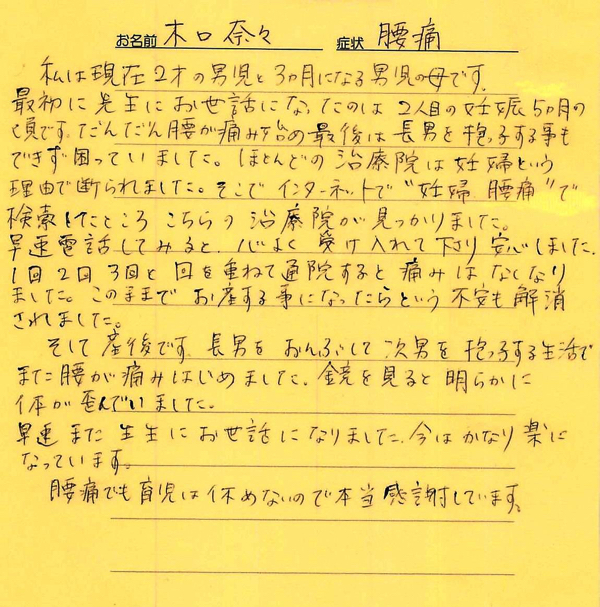 お名前 木口奈々 症状 腰痛
私は現在2才の男児と3ヵ月になる男児の母です。
最初に先生にお世話になったのは2人目の妊娠5ヵ月の
頃です。だんだん腰が痛み始め最後は長男を抱っこする事も
できず困っていました。ほとんどの治療院は妊婦という
理由で断られました。そこでインターネットで"妊婦 腰痛"で
検索したところこちらの治療院が見つかりました。
早速電話してみると、心よく受け入れて下さり安心しました。
1回2回3回と回を重ねて通院すると痛みはなくなり
ました。このままでお産する事になったらという不安も解消
されました。
そして産後です。長男をおんぶして次男を抱っこする生活で
また腰が痛みはじめました。鏡を見ると明らかに
体が歪んでいました。
早速また先生にお世話になりました。今はかなり楽に
なっています。
腰痛でも育児は休めないので本当感謝しています。